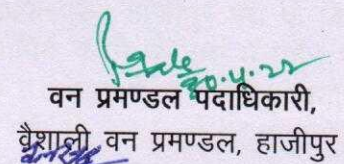 20.4.22
वन प्रमण्डल पदाधिकारी,
वैशाली वन प्रमण्डल, हाजीपुर